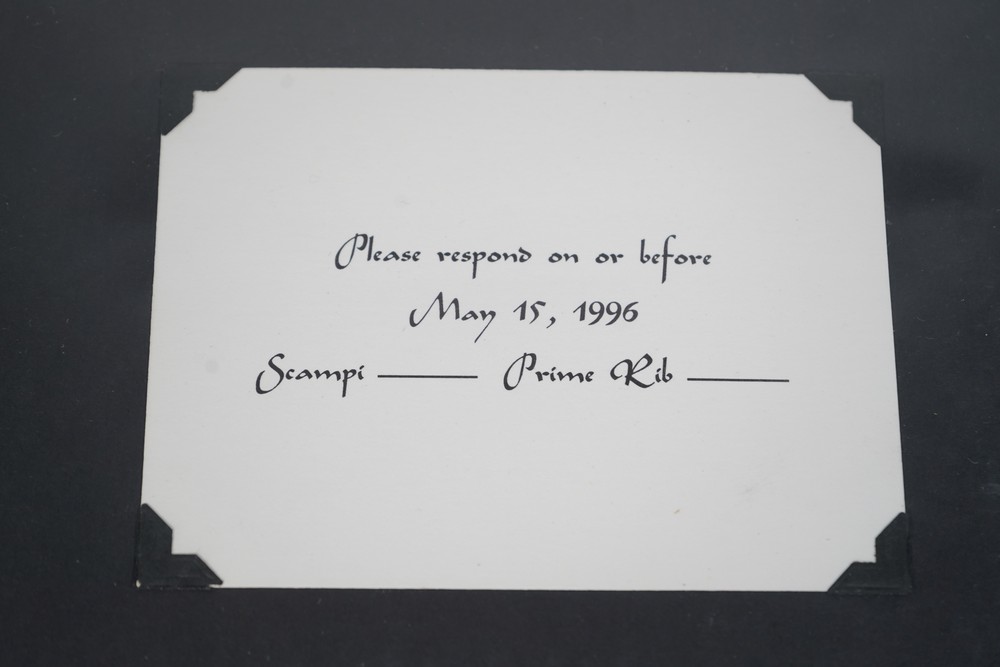 Please respond on or before
May 15, 1996
Scampi ______ Prime Rib ______